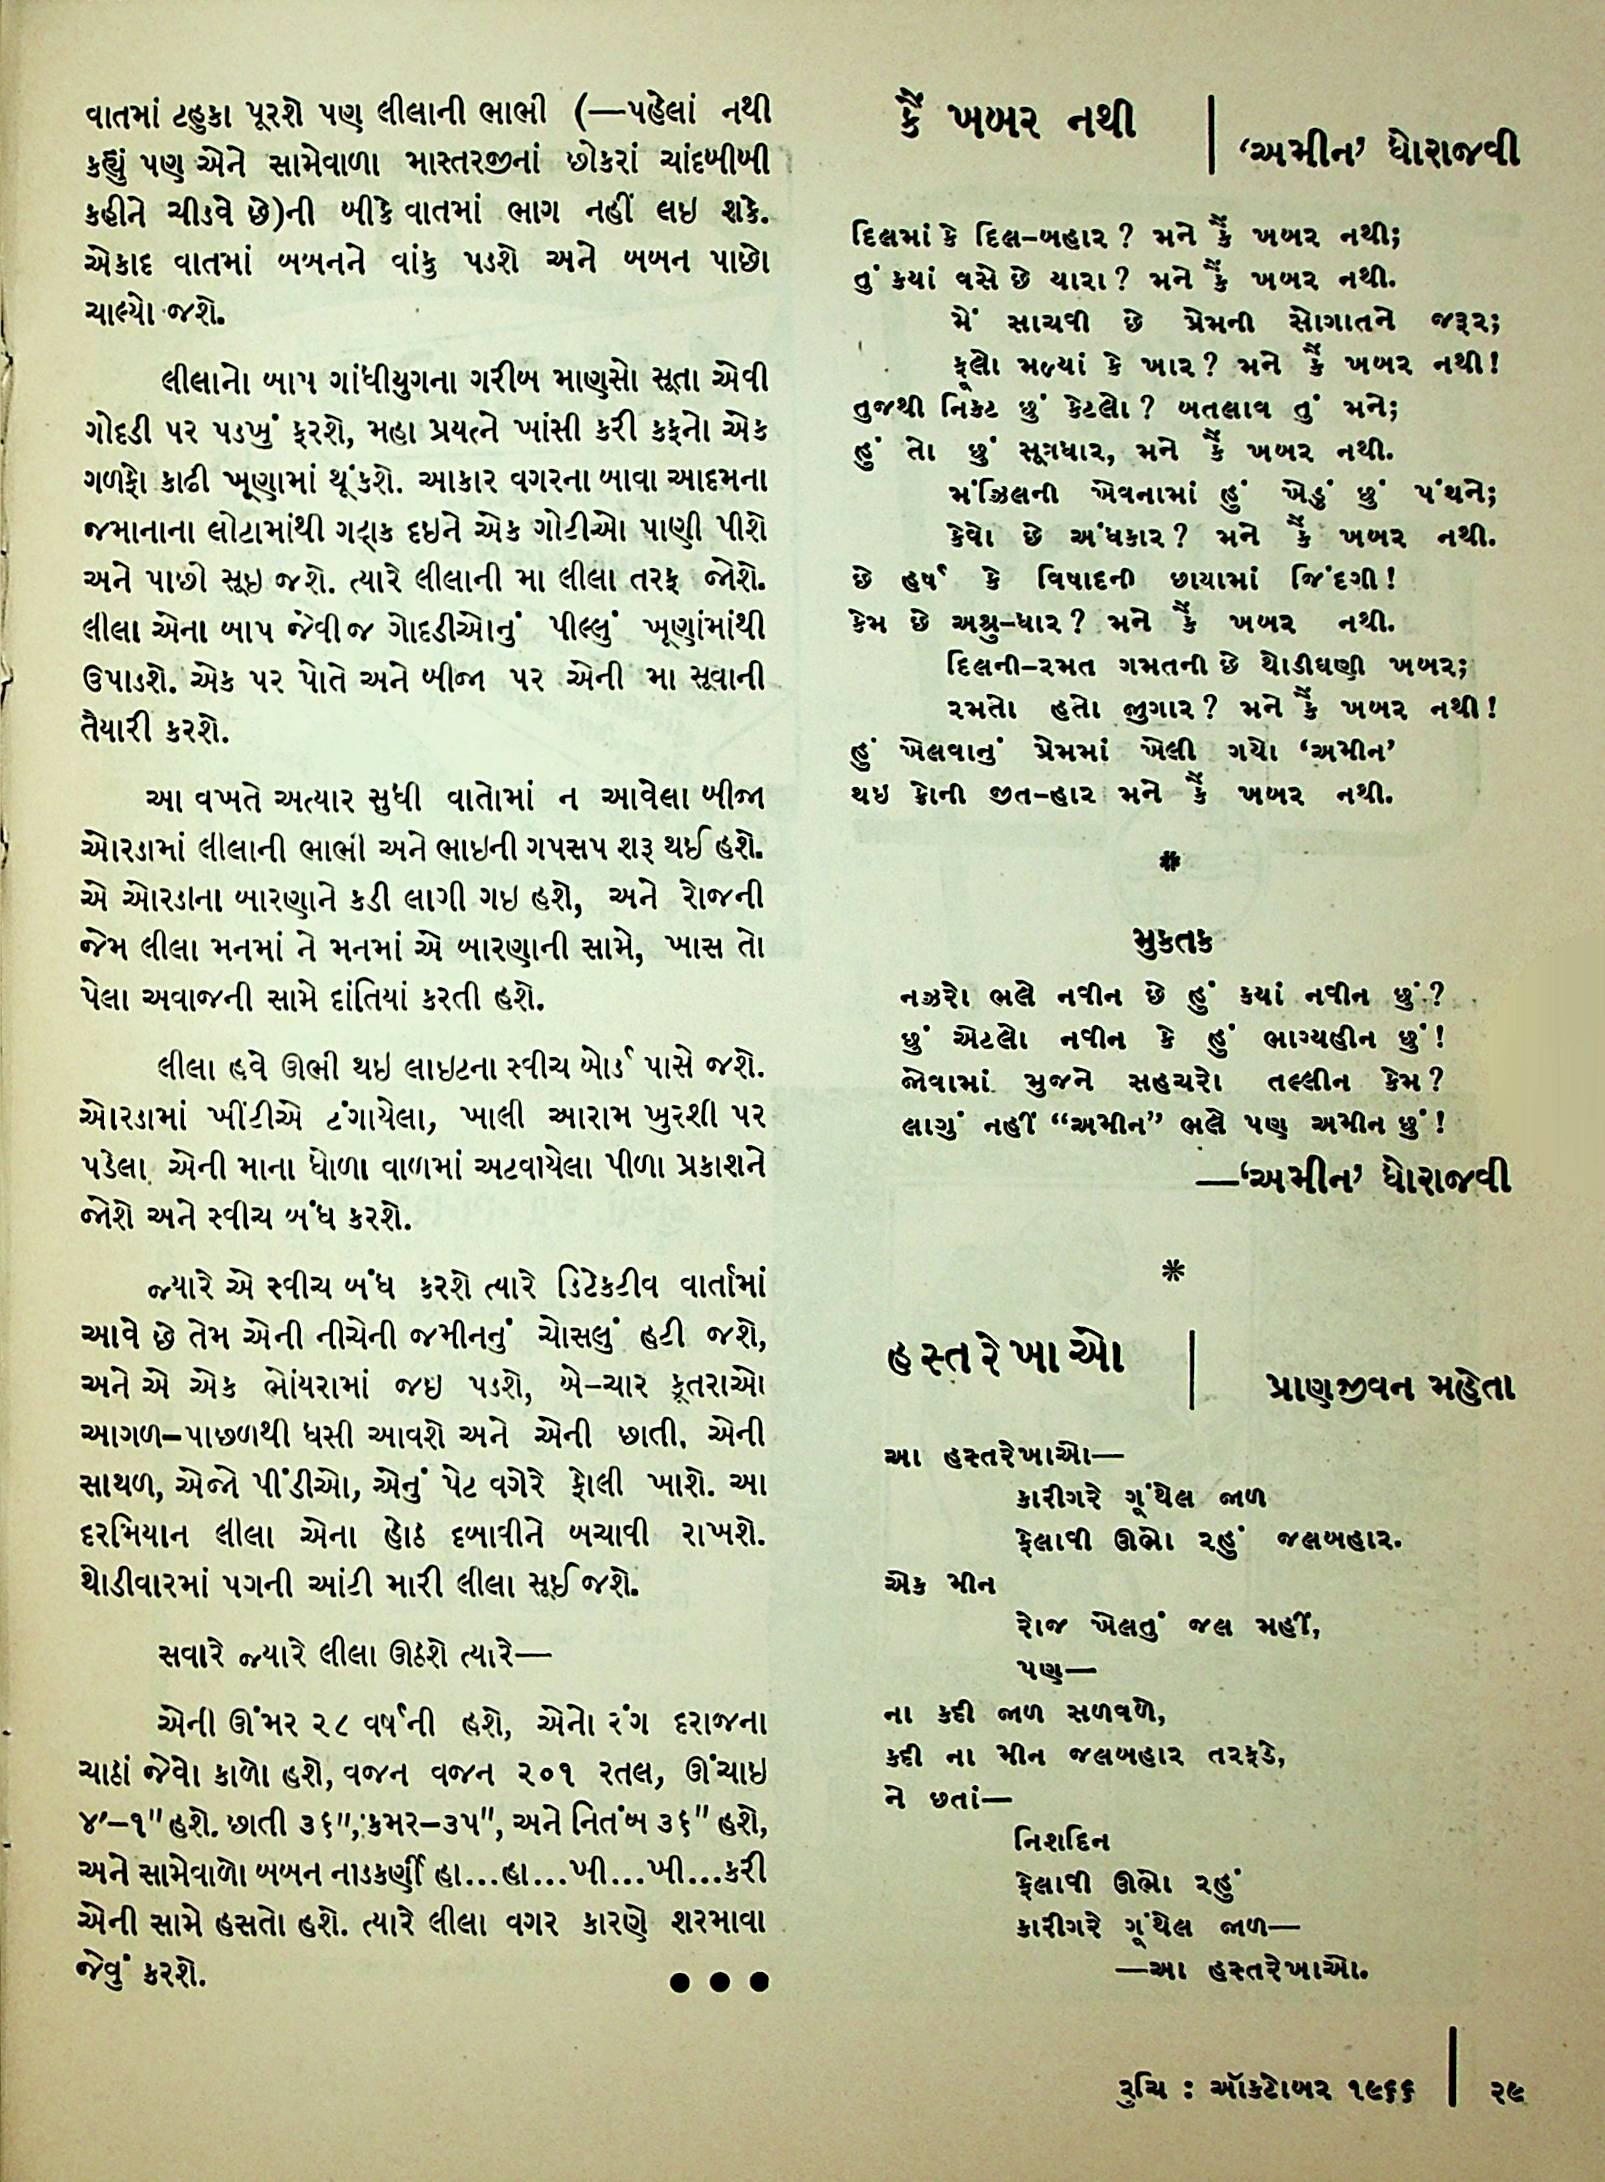 વાતમાં ટહુકા પૂરશે પણ લીલાની ભાભી (—પહેલાં નથી
કહ્યું પણ એને સામેવાળા માસ્તરજીનાં છોકરાં ચાંદબીબી
કહીને ચીડવે છે)ની બીકે વાતમાં ભાગ નહીં લઇ શકે.
એકાદ વાતમાં બબનને વાંકુ પડશે અને બબન પાછો
ચાલ્યો જશે.
લીલાનો બાપ ગાંધીયુગના ગરીબ માણસો સૂતા એવી
ગોદડી પર પડખું ફરશે, મહા પ્રયત્ને ખાંસી કરી કફનો એક
ગળફો કાઢી ખૂણામાં થૂંકશે. આકાર વગરના બાવા આદમના
જમાનાના લોટામાંથી ગટ્ટાક દઇને એક ગોટીઓ પાણી પીશે
અને પાછો સૂઇ જશે. ત્યારે લીલાની મા લીલા તરફ જોશે.
લીલા એના બાપ જેવીજ ગોદડીઓનું પીલ્લું ખૂણાંમાંથી
ઉપાડશે. એક પર પોતે અને બીજા પર એની મા સૂવાની
તૈયારી કરશે.
આ વખતે અત્યાર સુધી વાતોમાં ન આવેલા બીજા
ઓરડામાં લીલાની ભાભી અને ભાઇની ગપસપ શરૂ થઈ હશે.
એ ઓરડાના બારણાને કડી લાગી ગઇ હશે, અને રોજની
જેમ લીલા મનમાં ને મનમાં એ બારણાની સામે, ખાસ તો
પેલા અવાજની સામે દાંતિયાં કરતી હશે.
લીલા હવે ઊભી થઇ લાઇટના સ્વીચ બોર્ડ પાસે જશે.
ઓરડામાં ખીંટીએ ટંગાયેલા, ખાલી આરામ ખુરશી પર
પડેલા, એની માના ધોળા વાળમાં અટવાયેલા પીળા પ્રકાશને
જોશે અને સ્વીચ બંધ કરશે.
જ્યારે એ સ્વીચ બંધ કરશે ત્યારે ડિટેકટીવ વાર્તામાં
આવે છે તેમ એની નીચેની જમીનનું ચોસલું હટી જશે,
અને એ એક ભોંયરામાં જઇ પડશે, બે–ચાર કૂતરાઓ
આગળ–પાછળથી ધસી આવશે અને એની છાતી, એની
સાથળ, એજો પીંડીઓ, એનું પેટ વગેરે ફોલી ખાશે. આ
દરમિયાન લીલા એના હોઠ દબાવીને બચાવી રાખશે.
થોડીવારમાં પગની આંટી મારી લીલા સૂઈ જશે.
સવારે જ્યારે લીલા ઊઠશે ત્યારે—
એની ઊંમર ૨૮ વર્ષની હશે, એનો રંગ દરાજના
ચાઠાં જેવો કાળો હશે, વજન વજન ૨૦૧ રતલ, ઊંચાઇ
૪'–૧" હશે. છાતી ૩૬", કમર–૩૫", અને નિતંબ ૩૬" હશે,
અને સામેવાળો બબન નાડકર્ણી હા...હા...ખી...ખી...કરી
એની સામે હસતો હશે. ત્યારે લીલા વગર કારણે શરમાવા
જેવું કરશે. ● ● ●
કૈં ખબર નથી
'અમીન' ધોરાજવી
દિલમાં કે દિલ–બહાર ? મને કૈં ખબર નથી;
તું કયાં વસે છે યારા ? મને કૈં ખબર નથી.
મેં સાચવી છે પ્રેમની સોગાતને જરૂર;
ફૂલો મળ્યાં કે ખાર ? મને કૈં ખબર નથી !
તુજથી નિકટ છું કેટલો ? બતલાવ તું મને;
હું તો છું સૂત્રધાર, મને કૈં ખબર નથી.
મંઝિલની ખેવનામાં હું ખેડું છું પંથને;
કેવો છે અંધકાર ? મને કૈં ખબર નથી.
છે હર્ષ કે વિષાદની છાયામાં જિંદગી !
કેમ છે અશ્રુ–ધાર ? મને કૈં ખબર નથી.
દિલની–રમત ગમતની છે થોડીઘણી ખબર;
રમતો હતો જુગાર ? મને કૈં ખબર નથી !
હું ખેલવાનું પ્રેમમાં ખેલી ગયો 'અમીન'
થઇ કોની જીત–હાર મને કૈં ખબર નથી.
*
મુકતક
નઝરો ભલે નવીન છે હું કયાં નવીન છું ?
છું એટલો નવીન કે હું ભાગ્યહીન છું !
જોવામાં મુજને સહચરો તલ્લીન કેમ ?
લાગું નહીં "અમીન" ભલે પણ અમીન છું !
—'અમીન' ધોરાજવી
*
હસ્તરેખાઓ
પ્રાણજીવન મહેતા
આ હસ્તરેખાઓ—
કારીગરે ગૂંથેલ જાળ
ફેલાવી ઊભો રહું જલબહાર.
એક મીન
રોજ ખેલતું જલ મહીં,
પણ—
ના કદી જાળ સળવળે,
કદી ના મીન જલબહાર તરફડે,
ને છતાં—
નિશદિન
ફેલાવી ઊભો રહું
કારીગરે ગૂંથેલ જાળ—
—આ હસ્તરેખાઓ.
રુચિ : ઑકટોબર ૧૯૬૬ ૨૯